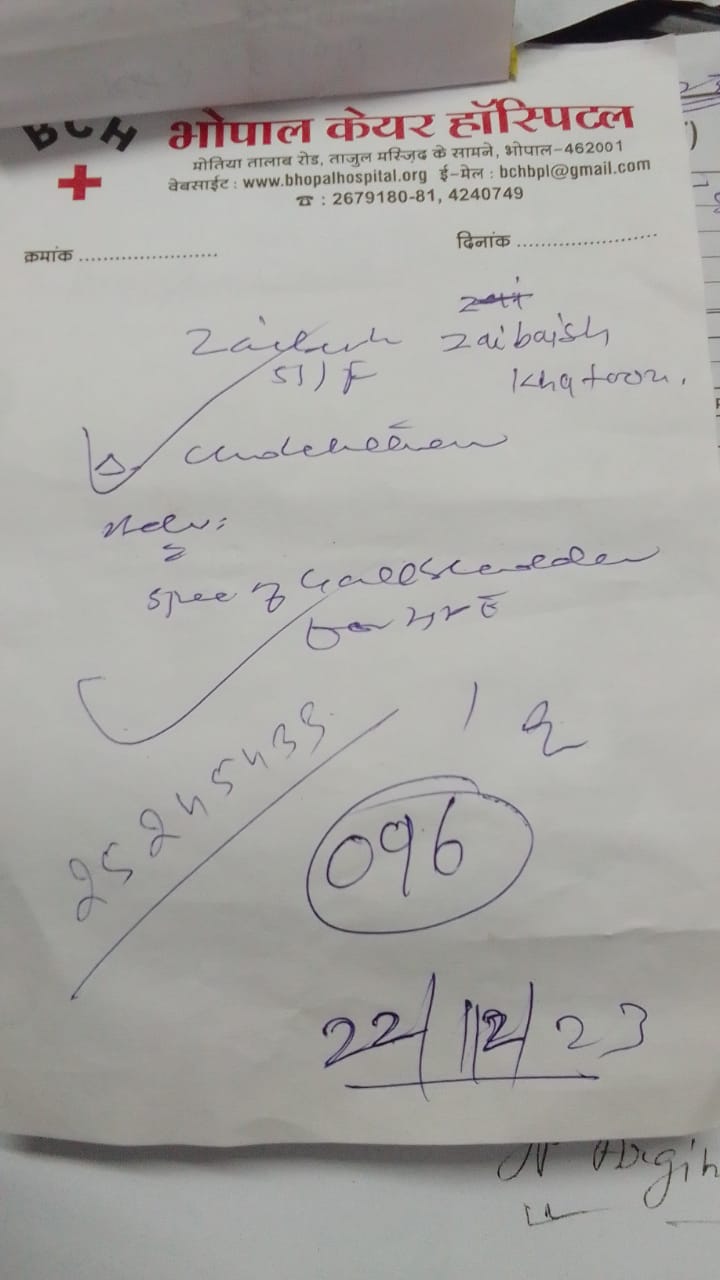 BCH भोपाल केयर हॉस्पिटल
मोतिया तालाब रोड, ताजुल मस्जिद के सामने, भोपाल-462001
वेबसाईट : www.bhopalhospital.org ई-मेल : bchbpl@gmail.com
☎ : 2679180-81, 4240749
क्रमांक ......................
दिनांक ........................
Zaibaish
51/F
Khatoon.
Adv:
Spec of Gallbladder
for HPE
25245439
096
22/12/23